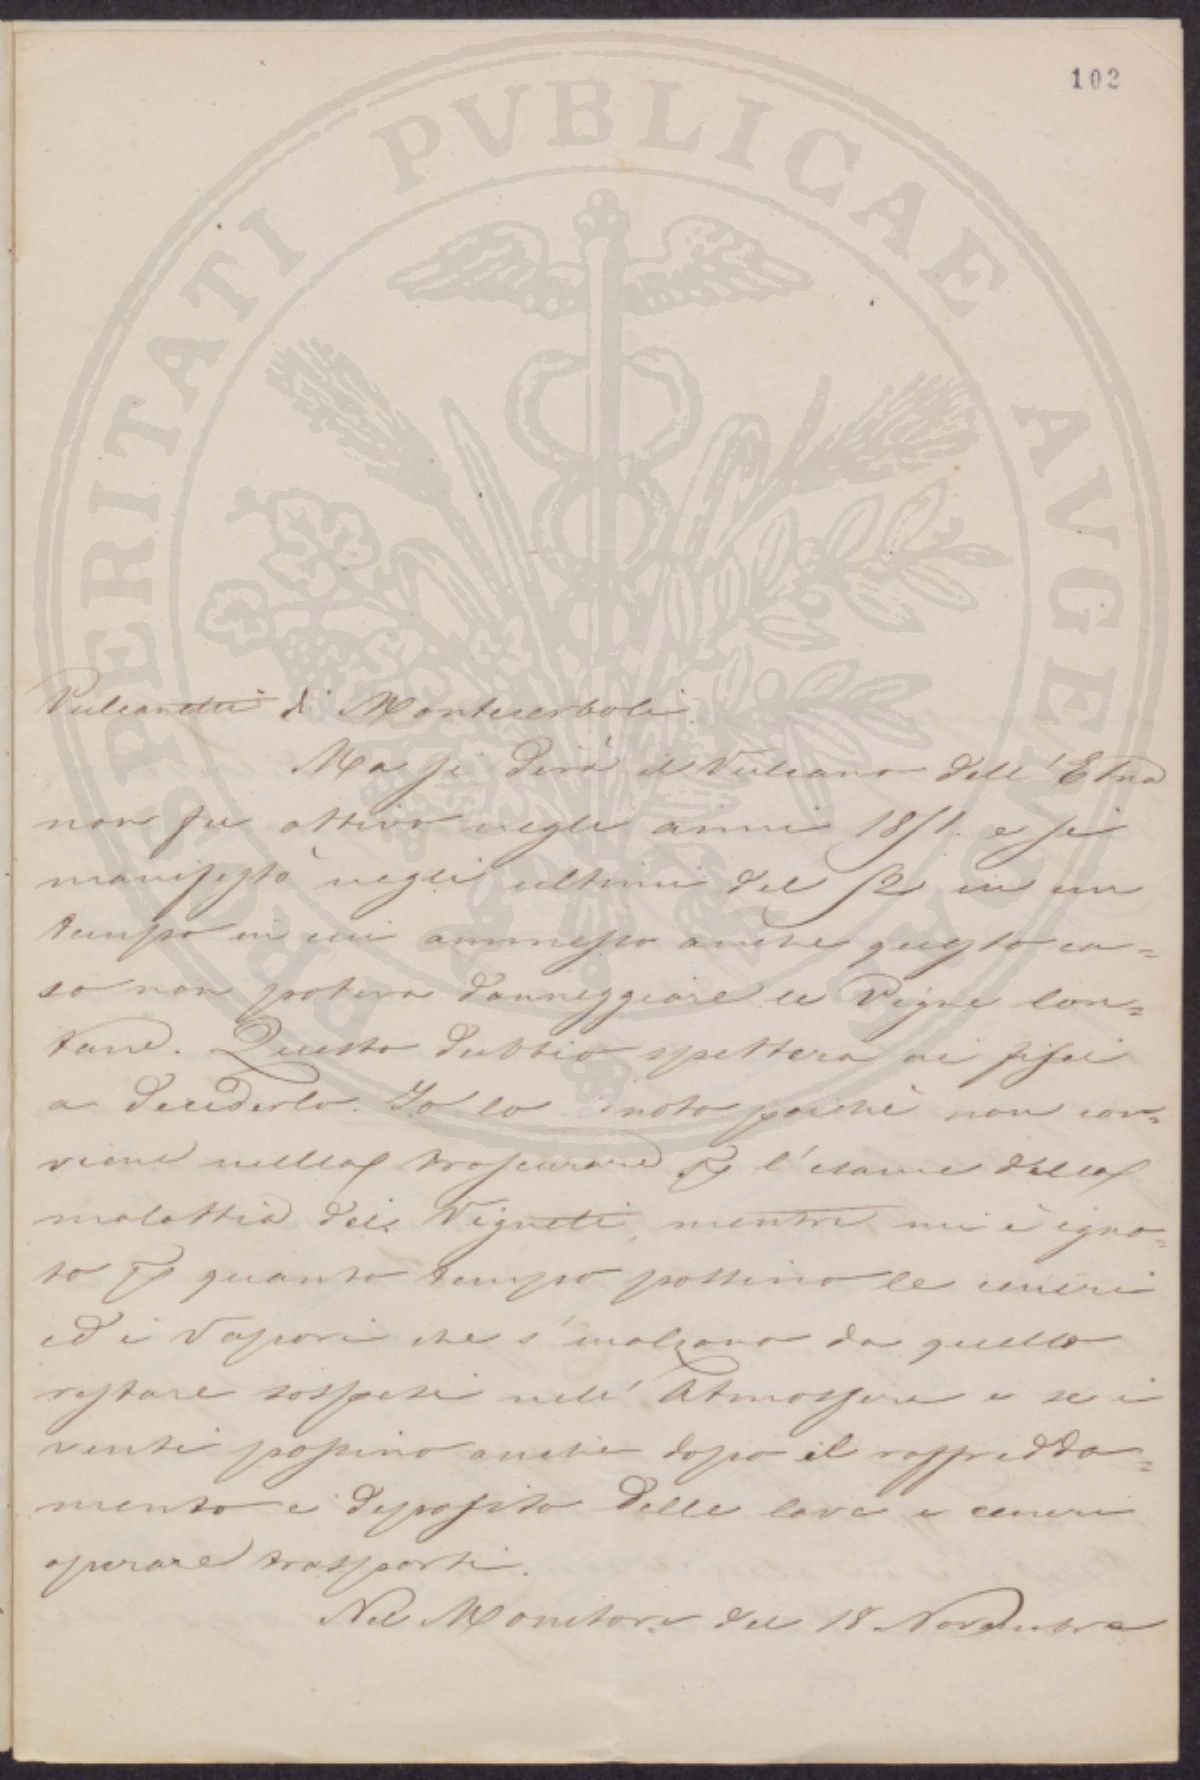 102
PROSPERITATI PVBLICAE AVGENDAE
Vulcanetti di Montecerboli.
Ma si dirà il Vulcano dell'Etna
non fu attivo negli anni 1851. e si
manifestò negli ultimi del 52 in un
tempo in cui ammesso anche questo ca=
so non poteva danneggiare le Vigne lon=
tane. Questo dubbio spetterà ai fisici
a deciderlo. Io lo noto poichè non con=
viene nulla trascurare p l'esame della
malattia dei Vigneti, mentre mi è igno=
to p quanto tempo possino le ceneri
ed i Vapori che s'inalzano da quello
restare sospesi nell'Atmosfera e se i
venti possino anche dopo il raffredda=
mento e deposito delle lave e ceneri
operare trasporti.
Nel Monitore del 18 Novembre